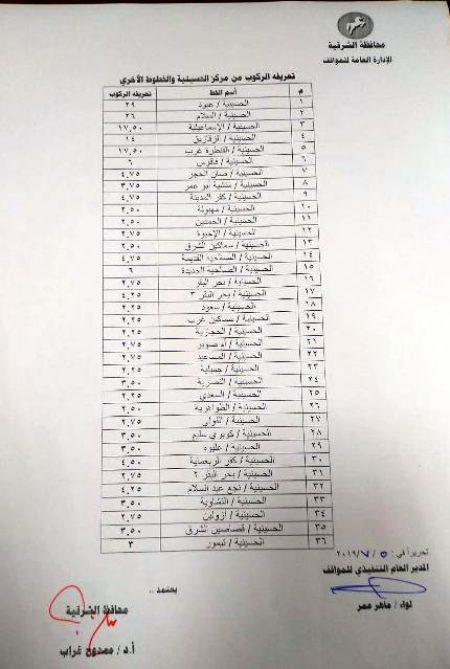 محافظة الشرقية
الإدارة العامة للمواقف
تعريفه الركوب من مركز الحسينية والخطوط الأخري
م أسم الخط تعريفه الركوب
١ الحسينية / عبود ٢٩
٢ الحسينية / السلام ٢٦
٣ الحسينية / الإسماعيلية ١٧,٥٠
٤ الحسينية / الزقازيق ١٤
٥ الحسينية / القنطرة غرب ١٧,٥٠
٦ الحسينية / فاقوس ٦
٧ الحسينية / صان الحجر ٤,٧٥
٨ الحسينية / منشية ابو عمر ٣,٧٥
٩ الحسينية / كفر المدينة ٤,٧٥
١٠ الحسينية / سهوله ٢,٥٠
١١ الحسينية / ٢,٥٠
١٢ الحسينية / الإخيوة ٢,٧٥
١٣ الحسينية / سماكين الشرق ٢,٥٠
١٤ الحسينية / الصالحية القديمة ٤,٧٥
١٥ الحسينية / الصالحية الجديدة ٦
١٦ الحسينية / بحر البقر ٢,٧٥
١٧ الحسينية / بحر البقر ٣ ٤,٢٥
١٨ الحسينية / سعود ٢,٢٥
١٩ الحسينية / سماكين غرب ٢,٢٥
٢٠ الحسينية / الحجازية ٢,٢٥
٢١ الحسينية / ام صوير ٢,٧٥
٢٢ الحسينية / المساعيد ٢,٧٥
٢٣ الحسينية / ٢,٢٥
٢٤ الحسينية / الناصرية ٣,٥٠
٢٥ الحسينية / السعدي ٢,٢٥
٢٦ الحسينية / الظواهرية ٢,٥٠
٢٧ الحسينية / ٢,٧٥
٢٨ الحسينية / كوبري سليم ٣,٥٠
٢٩ الحسينية / عليوه ٣,٥٠
٣٠ الحسينية / كفر ٤,٥٠
٣١ الحسينية / بحر البقر ٢ ٢,٧٥
٣٢ الحسينية / نجع عبد السلام ٤,٢٥
٣٣ الحسينية / النشاوية ٣,٥٠
٣٤ الحسينية / ٢,٧٥
٣٥ الحسينية / قصاصين الشرق ٣,٥٠
٣٦ الحسينية / تيمور ٣
تحريراً في : ٥ / ٧ / ٢٠١٩
المدير العام التنفيذي للمواقف
لواء / ماهر عمر
يعتمد ..
محافظة الشرقية
أ.د / ممدوح غراب